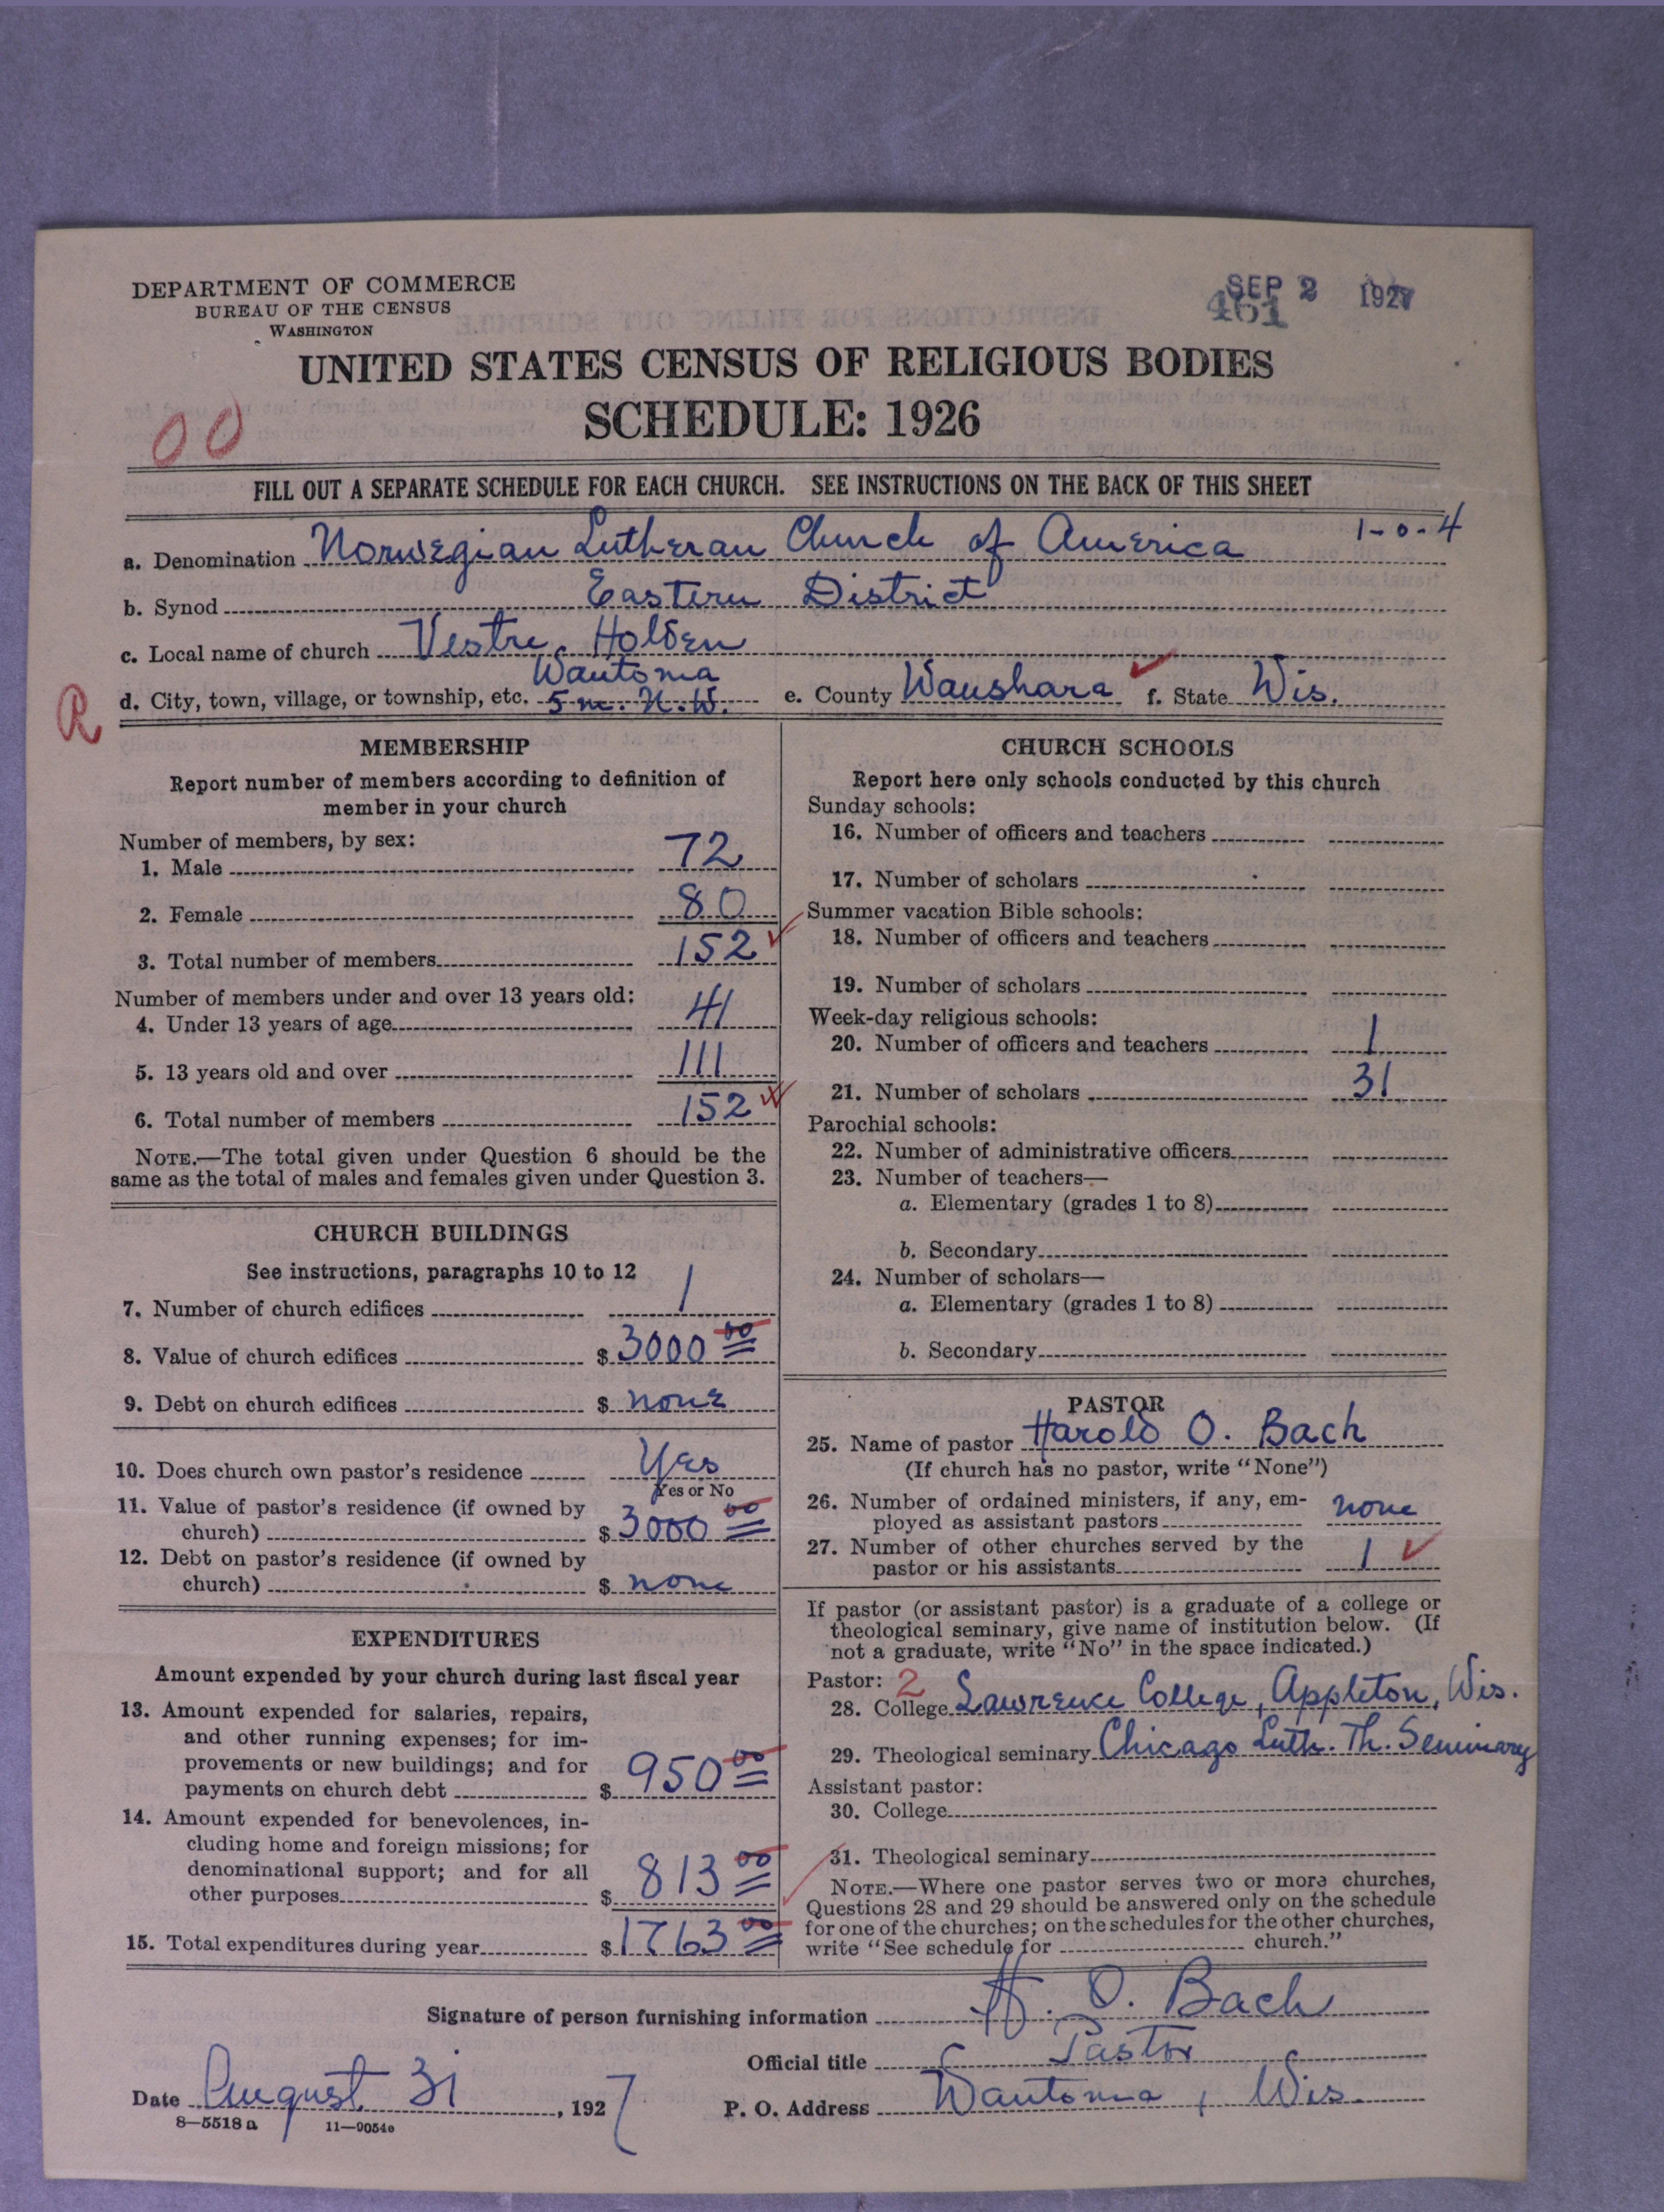 DEPARTMENT OF COMMERCE
BUREAU OF THE CENSUS
WASHINGTON
SEP 2 1927
461
UNITED STATES CENSUS OF RELIGIOUS BODIES
SCHEDULE: 1926
00
FILL OUT A SEPARATE SCHEDULE FOR EACH CHURCH. SEE INSTRUCTIONS ON THE BACK OF THIS SHEET
1-0-4
a. Denomination Norwegian Lutheran Church of America
b. Synod Eastern District
c. Local name of church Vestre Holden
Wautoma
d. City, town, village, or township, etc. 5 m. N.W. e. County Waushara f. State Wis.
R
MEMBERSHIP
Report number of members according to definition of
member in your church
Number of members, by sex:
1. Male 72
2. Female 80
3. Total number of members 152
Number of members under and over 13 years old:
4. Under 13 years of age 41
5. 13 years old and over 111
6. Total number of members 152
NOTE.—The total given under Question 6 should be the
same as the total of males and females given under Question 3.
CHURCH BUILDINGS
See instructions, paragraphs 10 to 12
7. Number of church edifices 1
8. Value of church edifices $ 3000 00
9. Debt on church edifices $ none
10. Does church own pastor's residence Yes
Yes or No
11. Value of pastor's residence (if owned by
church) $ 3000 00
12. Debt on pastor's residence (if owned by
church) $ none
EXPENDITURES
Amount expended by your church during last fiscal year
13. Amount expended for salaries, repairs,
and other running expenses; for im-
provements or new buildings; and for
payments on church debt $ 950 00
14. Amount expended for benevolences, in-
cluding home and foreign missions; for
denominational support; and for all
other purposes $ 813 00
15. Total expenditures during year $ 1763 00
CHURCH SCHOOLS
Report here only schools conducted by this church
Sunday schools:
16. Number of officers and teachers
17. Number of scholars
Summer vacation Bible schools:
18. Number of officers and teachers
19. Number of scholars
Week-day religious schools:
20. Number of officers and teachers 1
21. Number of scholars 31
Parochial schools:
22. Number of administrative officers
23. Number of teachers—
a. Elementary (grades 1 to 8)
b. Secondary
24. Number of scholars—
a. Elementary (grades 1 to 8)
b. Secondary
PASTOR
25. Name of pastor Harold O. Bach
(If church has no pastor, write "None")
26. Number of ordained ministers, if any, em-
ployed as assistant pastors none
27. Number of other churches served by the
pastor or his assistants 1
If pastor (or assistant pastor) is a graduate of a college or
theological seminary, give name of institution below. (If
not a graduate, write "No" in the space indicated.)
Pastor: 2
28. College Lawrence College, Appleton, Wis.
29. Theological seminary Chicago Luth. Th. Seminary
Assistant pastor:
30. College
31. Theological seminary
NOTE.—Where one pastor serves two or more churches,
Questions 28 and 29 should be answered only on the schedule
for one of the churches; on the schedules for the other churches,
write "See schedule for church."
Signature of person furnishing information H. O. Bach
Official title Pastor
Date August 31, 1927 P. O. Address Wautoma, Wis.
8—5518a 11—9054e